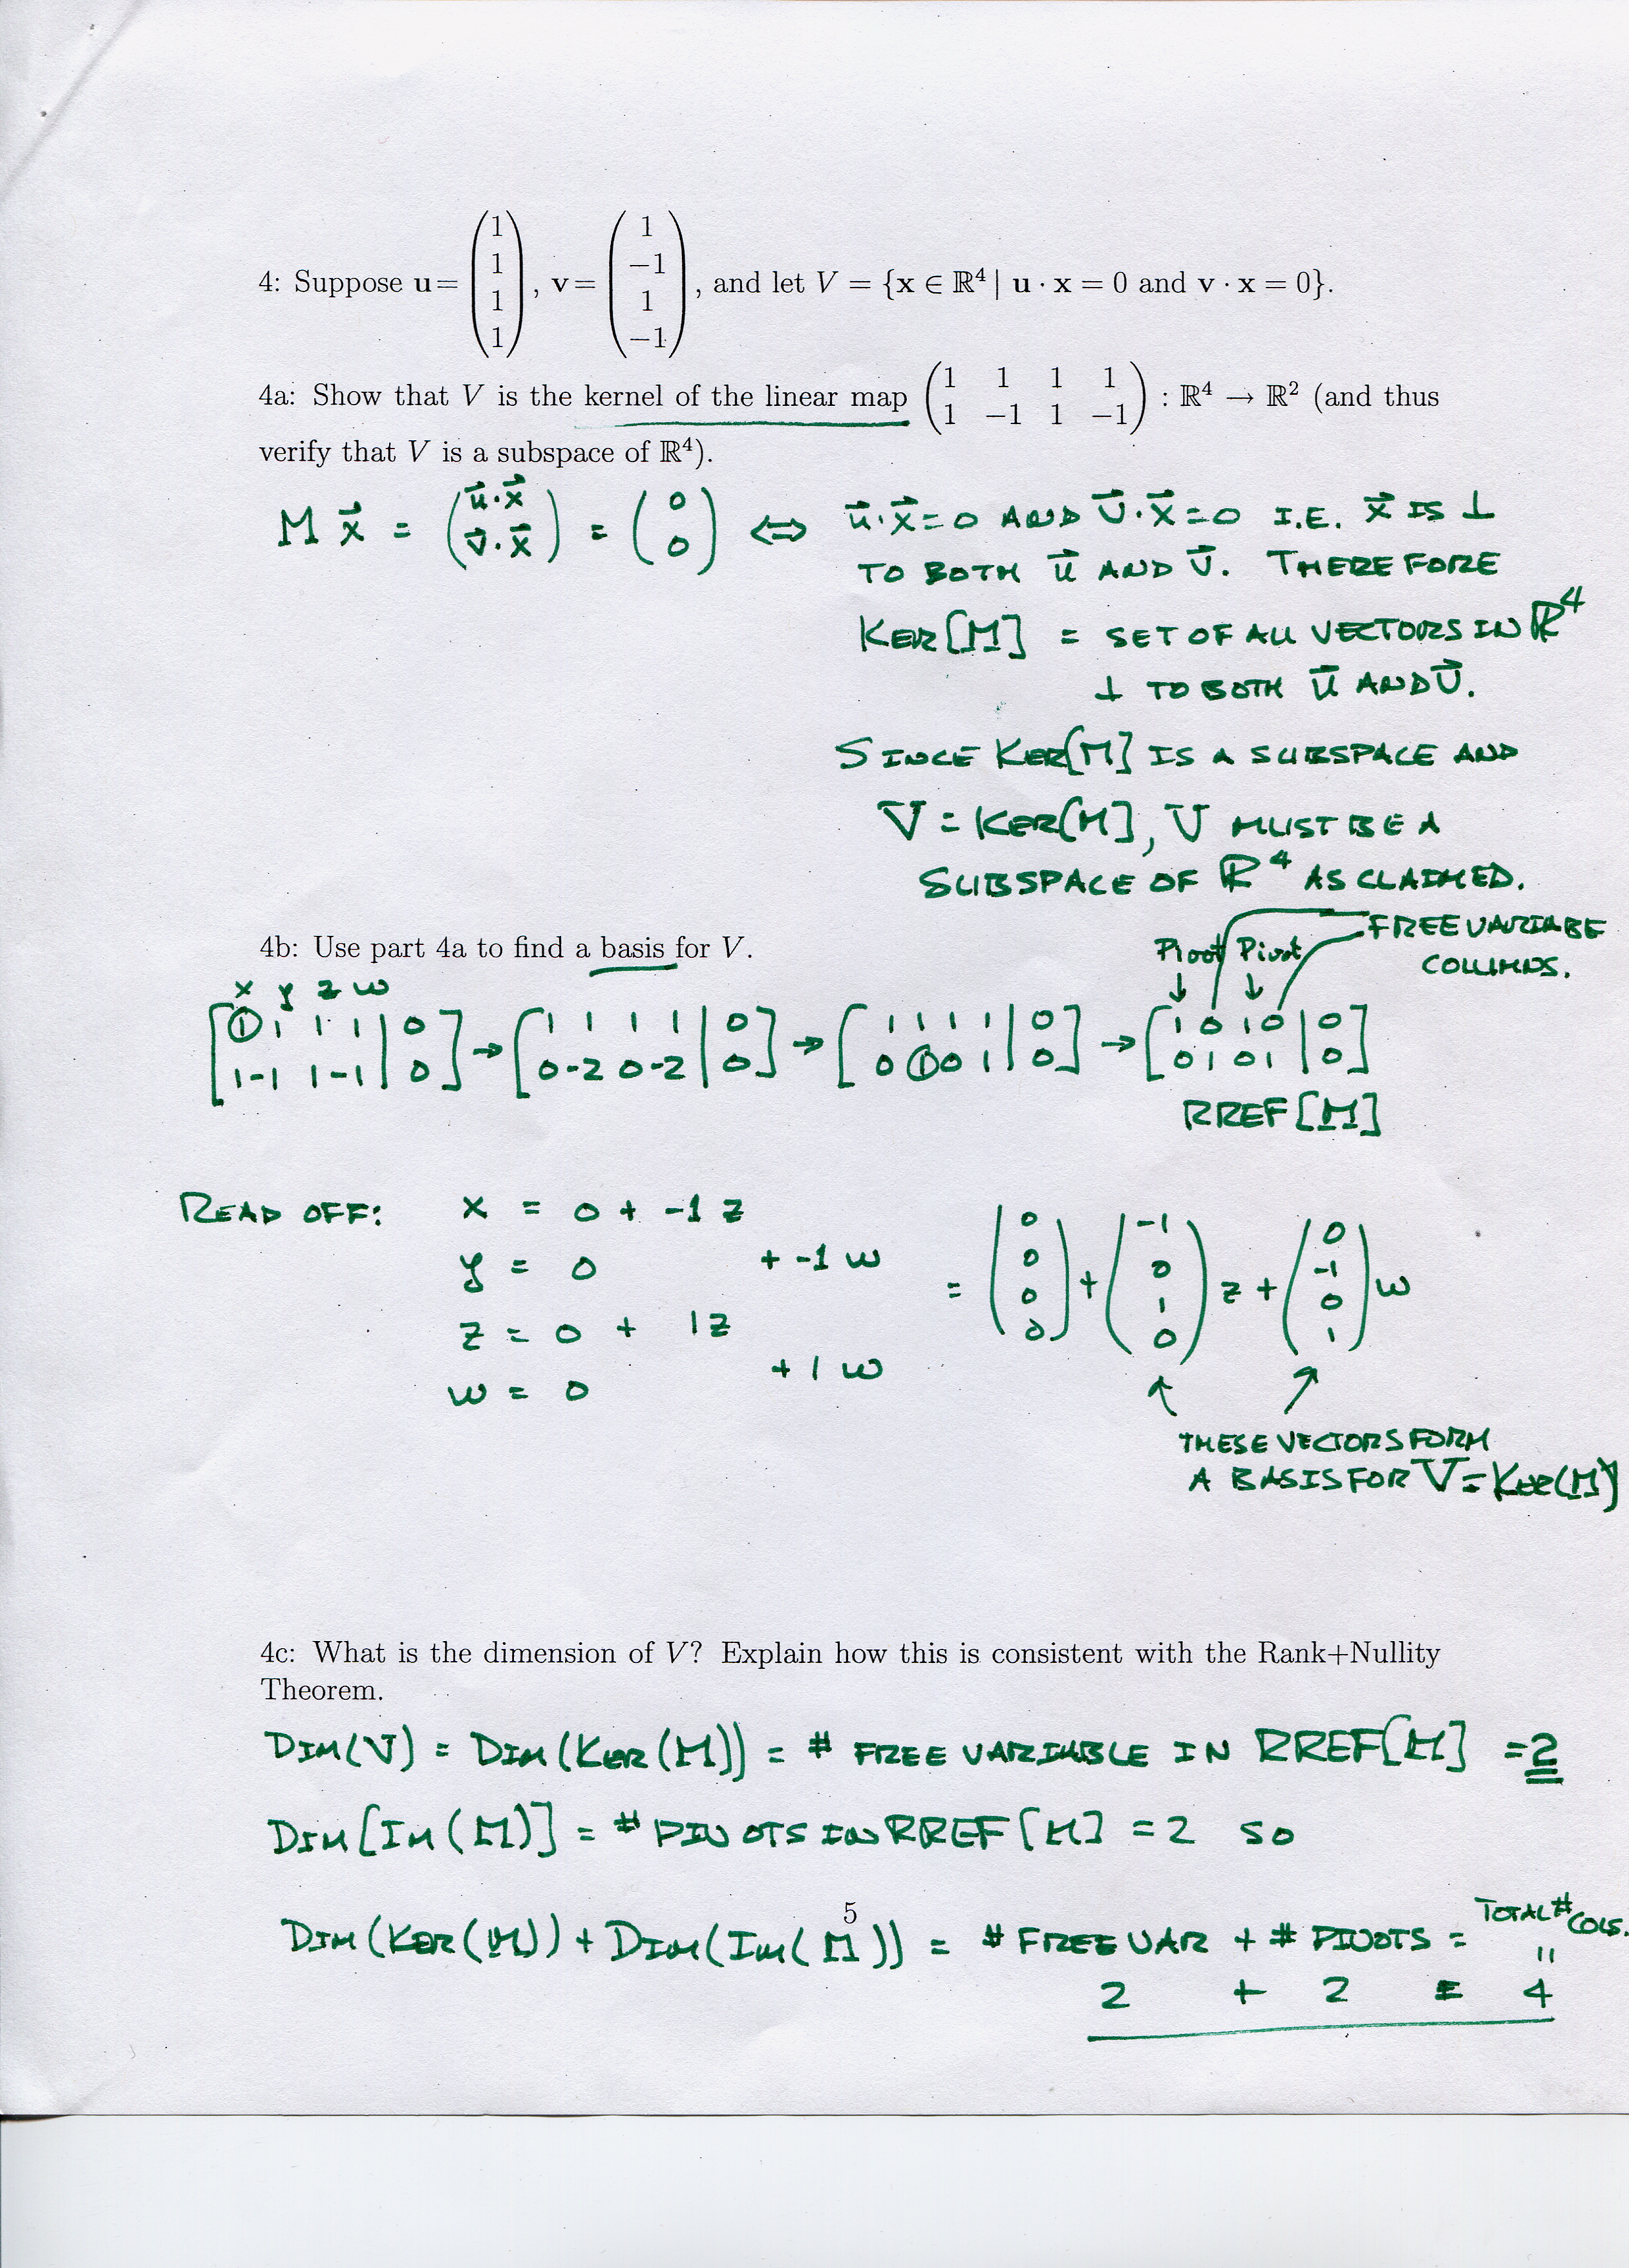 4: Suppose u= (1 1 1 1), v= (1 −1 1 −1), and let V = {x ∈ ℝ⁴ | u · x = 0 and v · x = 0}.
4a: Show that V is the kernel of the linear map (1 1 1 1 / 1 −1 1 −1) : ℝ⁴ → ℝ² (and thus
verify that V is a subspace of ℝ⁴).
M x⃗ = (u⃗·x⃗ / v⃗·x⃗) = (0 / 0) ⇔ u⃗·x⃗=0 AND v⃗·x⃗=0 I.E. x⃗ IS ⊥
TO BOTH u⃗ AND v⃗. THEREFORE
KER[M] = SET OF ALL VECTORS IN ℝ⁴
⊥ TO BOTH u⃗ AND v⃗.
SINCE KER[M] IS A SUBSPACE AND
V = KER[M], V MUST BE A
SUBSPACE OF ℝ⁴ AS CLAIMED.
4b: Use part 4a to find a basis for V.
Pivot Pivot FREE VARIABE
COLUMNS.
x y z w
[1 1 1 1 | 0 / 1 -1 1 -1 | 0] → [1 1 1 1 | 0 / 0 -2 0 -2 | 0] → [1 1 1 1 | 0 / 0 1 0 1 | 0] → [1 0 1 0 | 0 / 0 1 0 1 | 0]
RREF[M]
READ OFF: x = 0 + -1 z
y = 0 + -1 w
z = 0 + 1z
w = 0 + 1 w
= (0 0 0 0) + (-1 0 1 0) z + (0 -1 0 1) w
↑ ↗
THESE VECTORS FORM
A BASIS FOR V = KER(M)
4c: What is the dimension of V? Explain how this is consistent with the Rank+Nullity
Theorem.
DIM(V) = DIM(KER(M)) = # FREE VARIABLE IN RREF[M] = 2
DIM[IM(M)] = # PIVOTS IN RREF[M] = 2 SO
5
DIM(KER(M)) + DIM(IM(M)) = # FREE VAR + # PIVOTS = TOTAL # COLS.
2 + 2 = 4